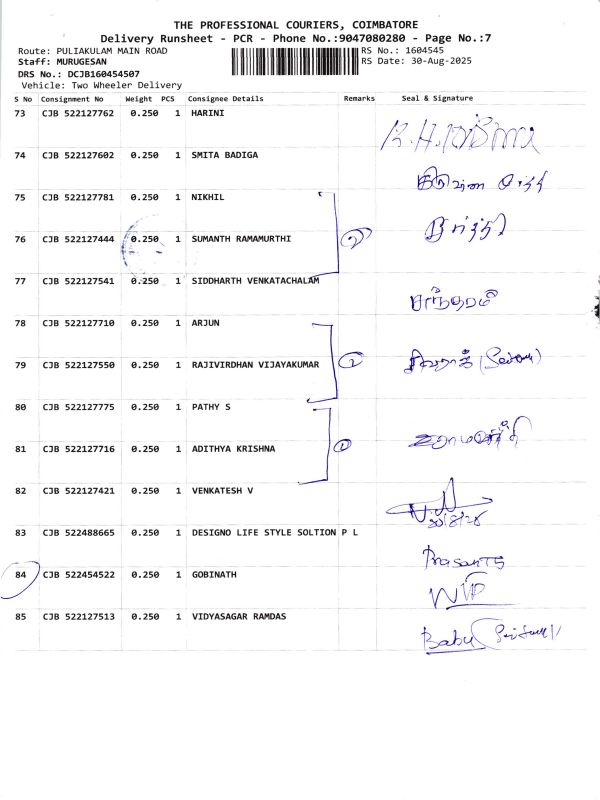 THE PROFESSIONAL COURIERS, COIMBATORE
Delivery Runsheet - PCR - Phone No.:9047080280 - Page No.:7
Route: PULIAKULAM MAIN ROAD RS No.: 1604545
Staff: MURUGESAN RS Date: 30-Aug-2025
DRS No.: DCJB160454507
Vehicle: Two Wheeler Delivery
S No Consignment No Weight PCS Consignee Details Remarks Seal & Signature
73 CJB 522127762 0.250 1 HARINI
74 CJB 522127602 0.250 1 SMITA BADIGA
75 CJB 522127781 0.250 1 NIKHIL
76 CJB 522127444 0.250 1 SUMANTH RAMAMURTHI
77 CJB 522127541 0.250 1 SIDDHARTH VENKATACHALAM
78 CJB 522127710 0.250 1 ARJUN
79 CJB 522127550 0.250 1 RAJIVIRDHAN VIJAYAKUMAR
80 CJB 522127775 0.250 1 PATHY S
81 CJB 522127716 0.250 1 ADITHYA KRISHNA
82 CJB 522127421 0.250 1 VENKATESH V
83 CJB 522488665 0.250 1 DESIGNO LIFE STYLE SOLTION P L
Prasanth
84 CJB 522454522 0.250 1 GOBINATH
85 CJB 522127513 0.250 1 VIDYASAGAR RAMDAS
Babu